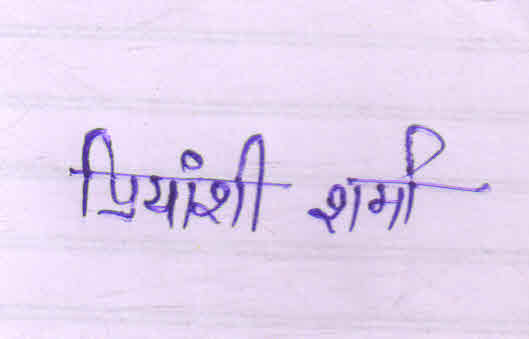 प्रियांशी शर्मा